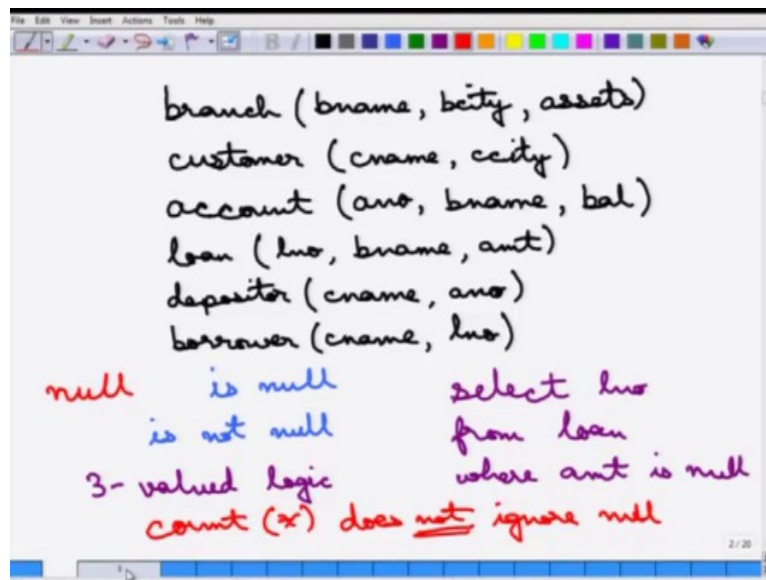 File Edit View Insert Actions Tools Help
B I
branch (bname, bcity, assets)
customer (cname, ccity)
account (ano, bname, bal)
loan (lno, bname, amt)
depositor (cname, ano)
borrower (cname, lno)
null is null select lno
is not null from loan
3-valued logic where amt is null
count (*) does not ignore null
2/20
1